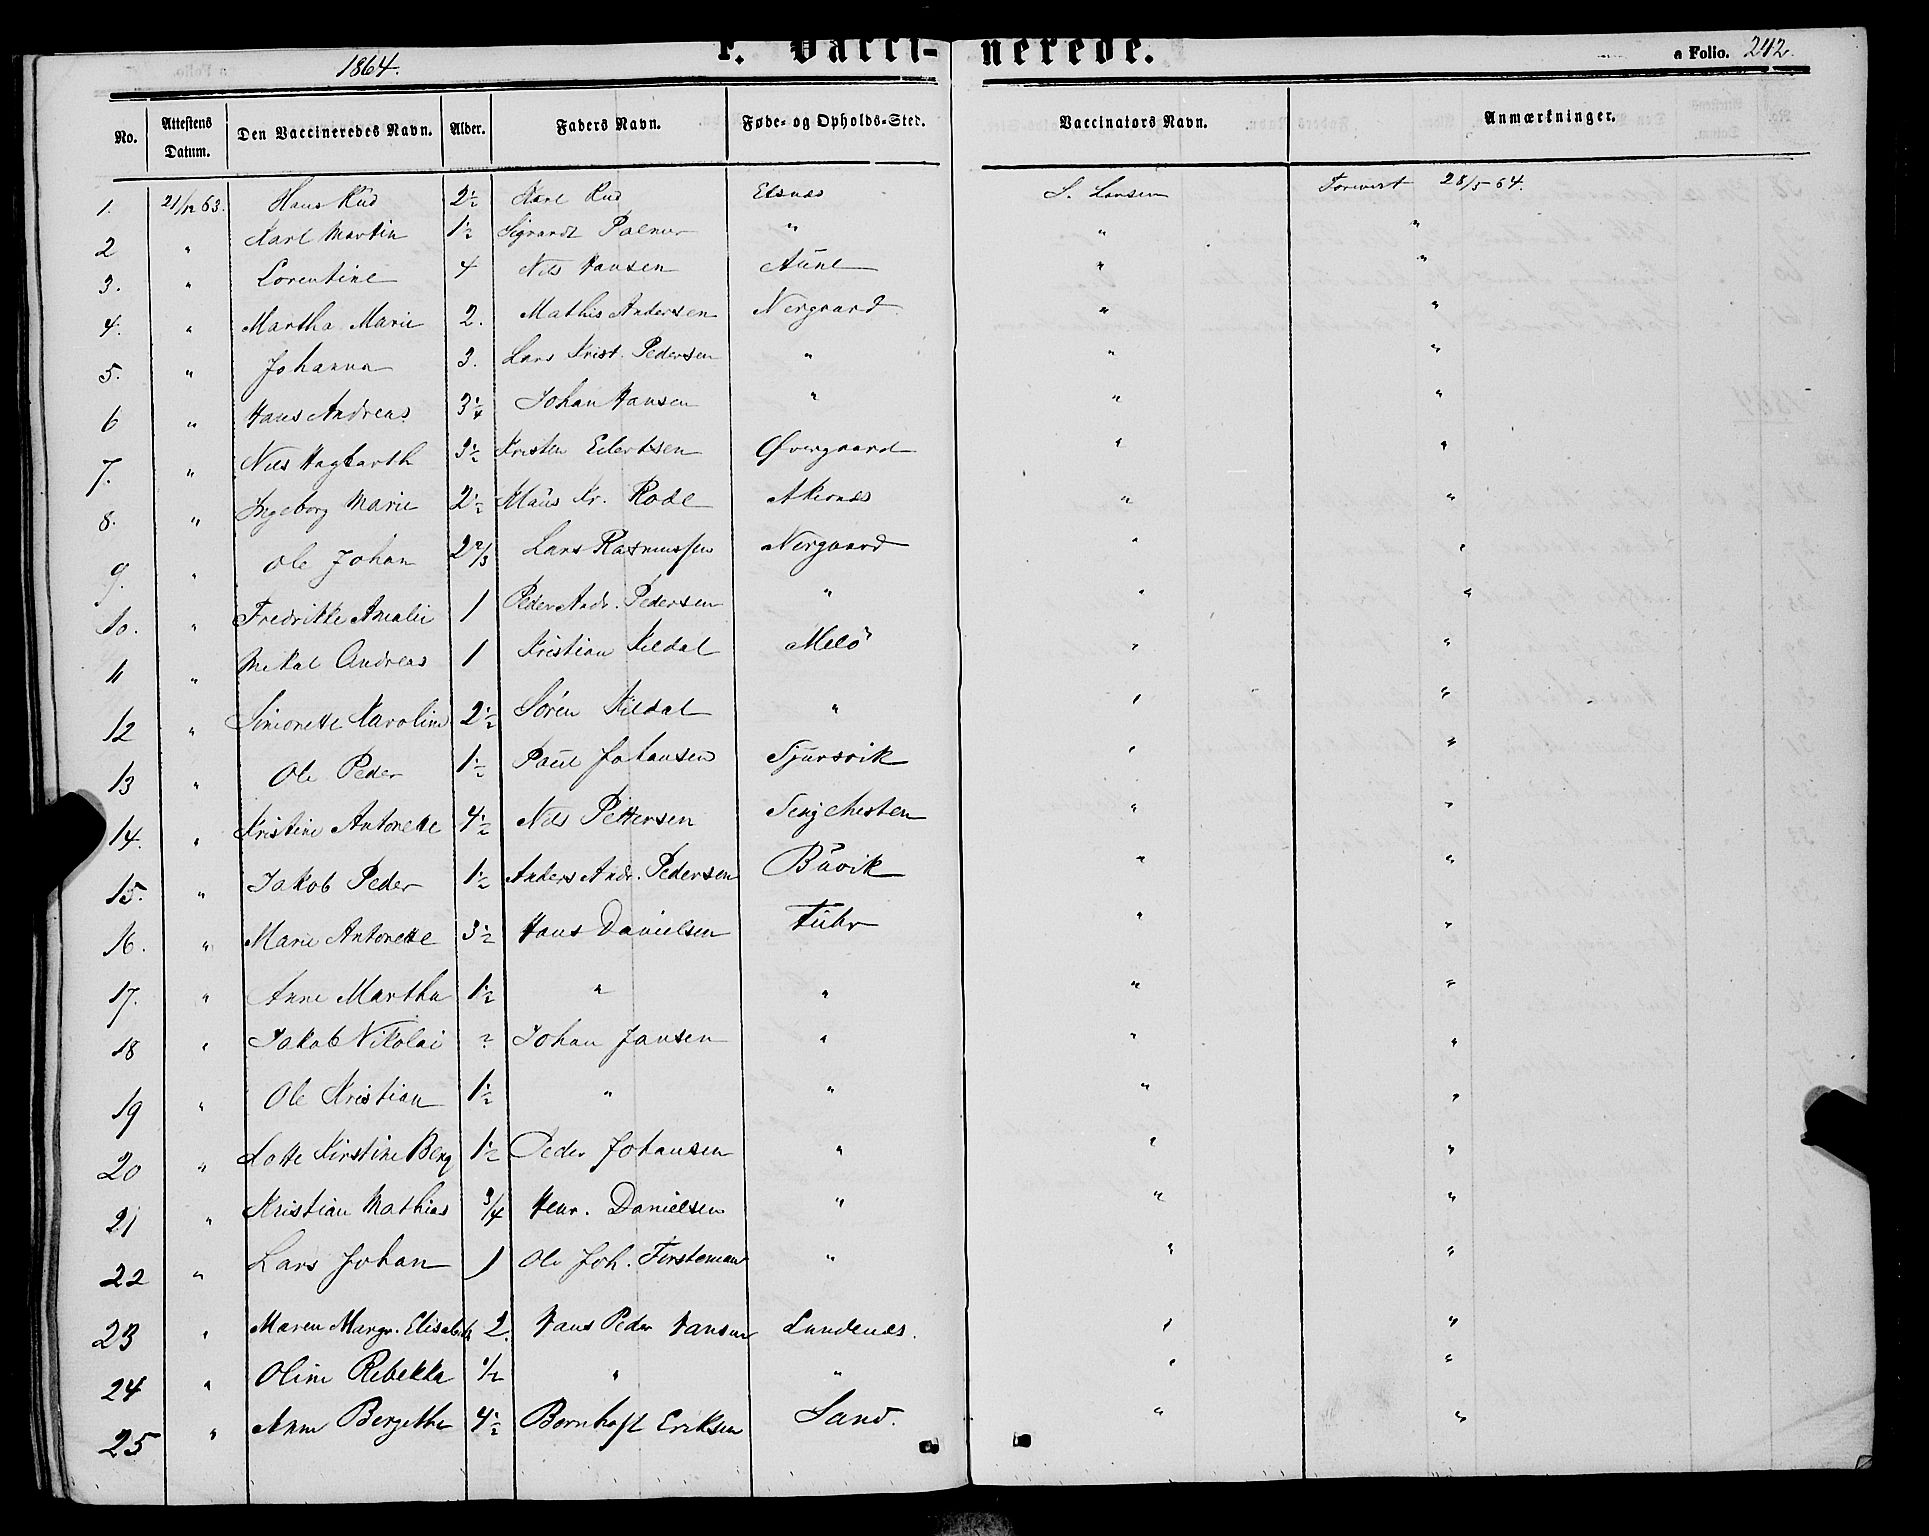 1864. F. Vacci- nerede. a Folio. 242.
No. Attestens Datum. Den Vaccineredes Navn. Alder. Faders Navn. Føde- og Opholds-Sted. Vaccinators Navn. Anmærkninger.
1. 21/12 63. Hans Rud 2½ Karl Rud Elsnæs S. Larsen Forevist 28/5 64.
2 " Karl Martin 1½ " " "
3. " Lorentine 4 Nils Hansen Aune " "
4. " Martha Marie 2. Mathis Andersen Nergaard " "
5. " Johanna 3. Lars Krist. Pedersen " " "
6 " Hans Andreas 3¼ Johan Hansen " " "
7. " Nils Hagbarth 3½ Kristen Edertsen Øvergaard " "
8. " Ingeborg Marie 2½ Kr. Rode " "
9. " Ole Johan 2 2/3 Lars Rasmussen Nergaard " "
10. " Fredrikke Amalie 1 Peder Andr. Pedersen " " "
11 " Mikal Andreas 1 Kristian Kildal Melö " "
12 " Simonette Karoline 2½ Sören Kildal " " "
13 " Ole Peder 1½ Paul Johansen Tjursvik " "
14. " Kristine Antonette 4½ Nils Pettersen " "
15. " Jakob Peder 1½ Anders Andr. Pedersen Buvik " "
16. " Marie Antonette 3½ Hans Danielsen " "
17. " Anne Martha 1½ " " " "
18 " Jakob Nikolai ? Johan Jansen " " "
19 " Ole Kristian 1½ " " " "
20 " Lotte Kirstine Berg 1½ Peder Johansen " " "
21 " Kristian Mathias 3/4 Henr. Danielsen " " "
22 " Lars Johan 1 Ole Joh. " " "
23 " Maren Margr. Elisabeth 2. Hans Peder Hansen Lundenæs. " "
24 " Oline Rebekka ½ " " " "
25 " Anne Bergitte 4½ Bernhoft Eriksen Sand. " "